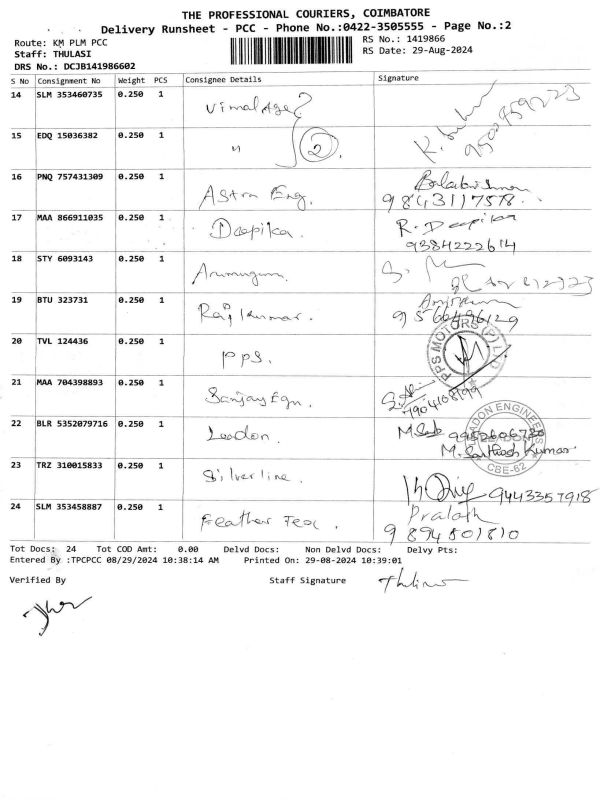 THE PROFESSIONAL COURIERS, COIMBATORE
Delivery Runsheet - PCC - Phone No.:0422-3505555 - Page No.:2
Route: KM PLM PCC
RS No.: 1419866
Staff: THULASI
RS Date: 29-Aug-2024
DRS No.: DCJB141986602
S No Consignment No Weight PCS Consignee Details Signature
14 SLM 353460735 0.250 1 Vimal Age
15 EDQ 15036382 0.250 1 " 2
16 PNQ 757431309 0.250 1 Astra Eng. Balakrishnan
9843117578
17 MAA 866911035 0.250 1 Deepika. R. Deepika
9384222614
18 STY 6093143 0.250 1 Arumugam.
19 BTU 323731 0.250 1 Rajkumar.
9566496129
20 TVL 124436 0.250 1 PPS. PPS MOTORS (P) LTD
21 MAA 704398893 0.250 1 Sanjay Egn.
7904108199
22 BLR 5352079716 0.250 1 Leadon. 9952606730
M. Santhosh Kumar
ENGINEERS
CBE-62
23 TRZ 310015833 0.250 1 Silverline. 9443357918
24 SLM 353458887 0.250 1 Feather Feox. Pralash
9894501810
Tot Docs: 24 Tot COD Amt: 0.00 Delvd Docs: Non Delvd Docs: Delvy Pts:
Entered By :TPCPCC 08/29/2024 10:38:14 AM Printed On: 29-08-2024 10:39:01
Verified By Staff Signature